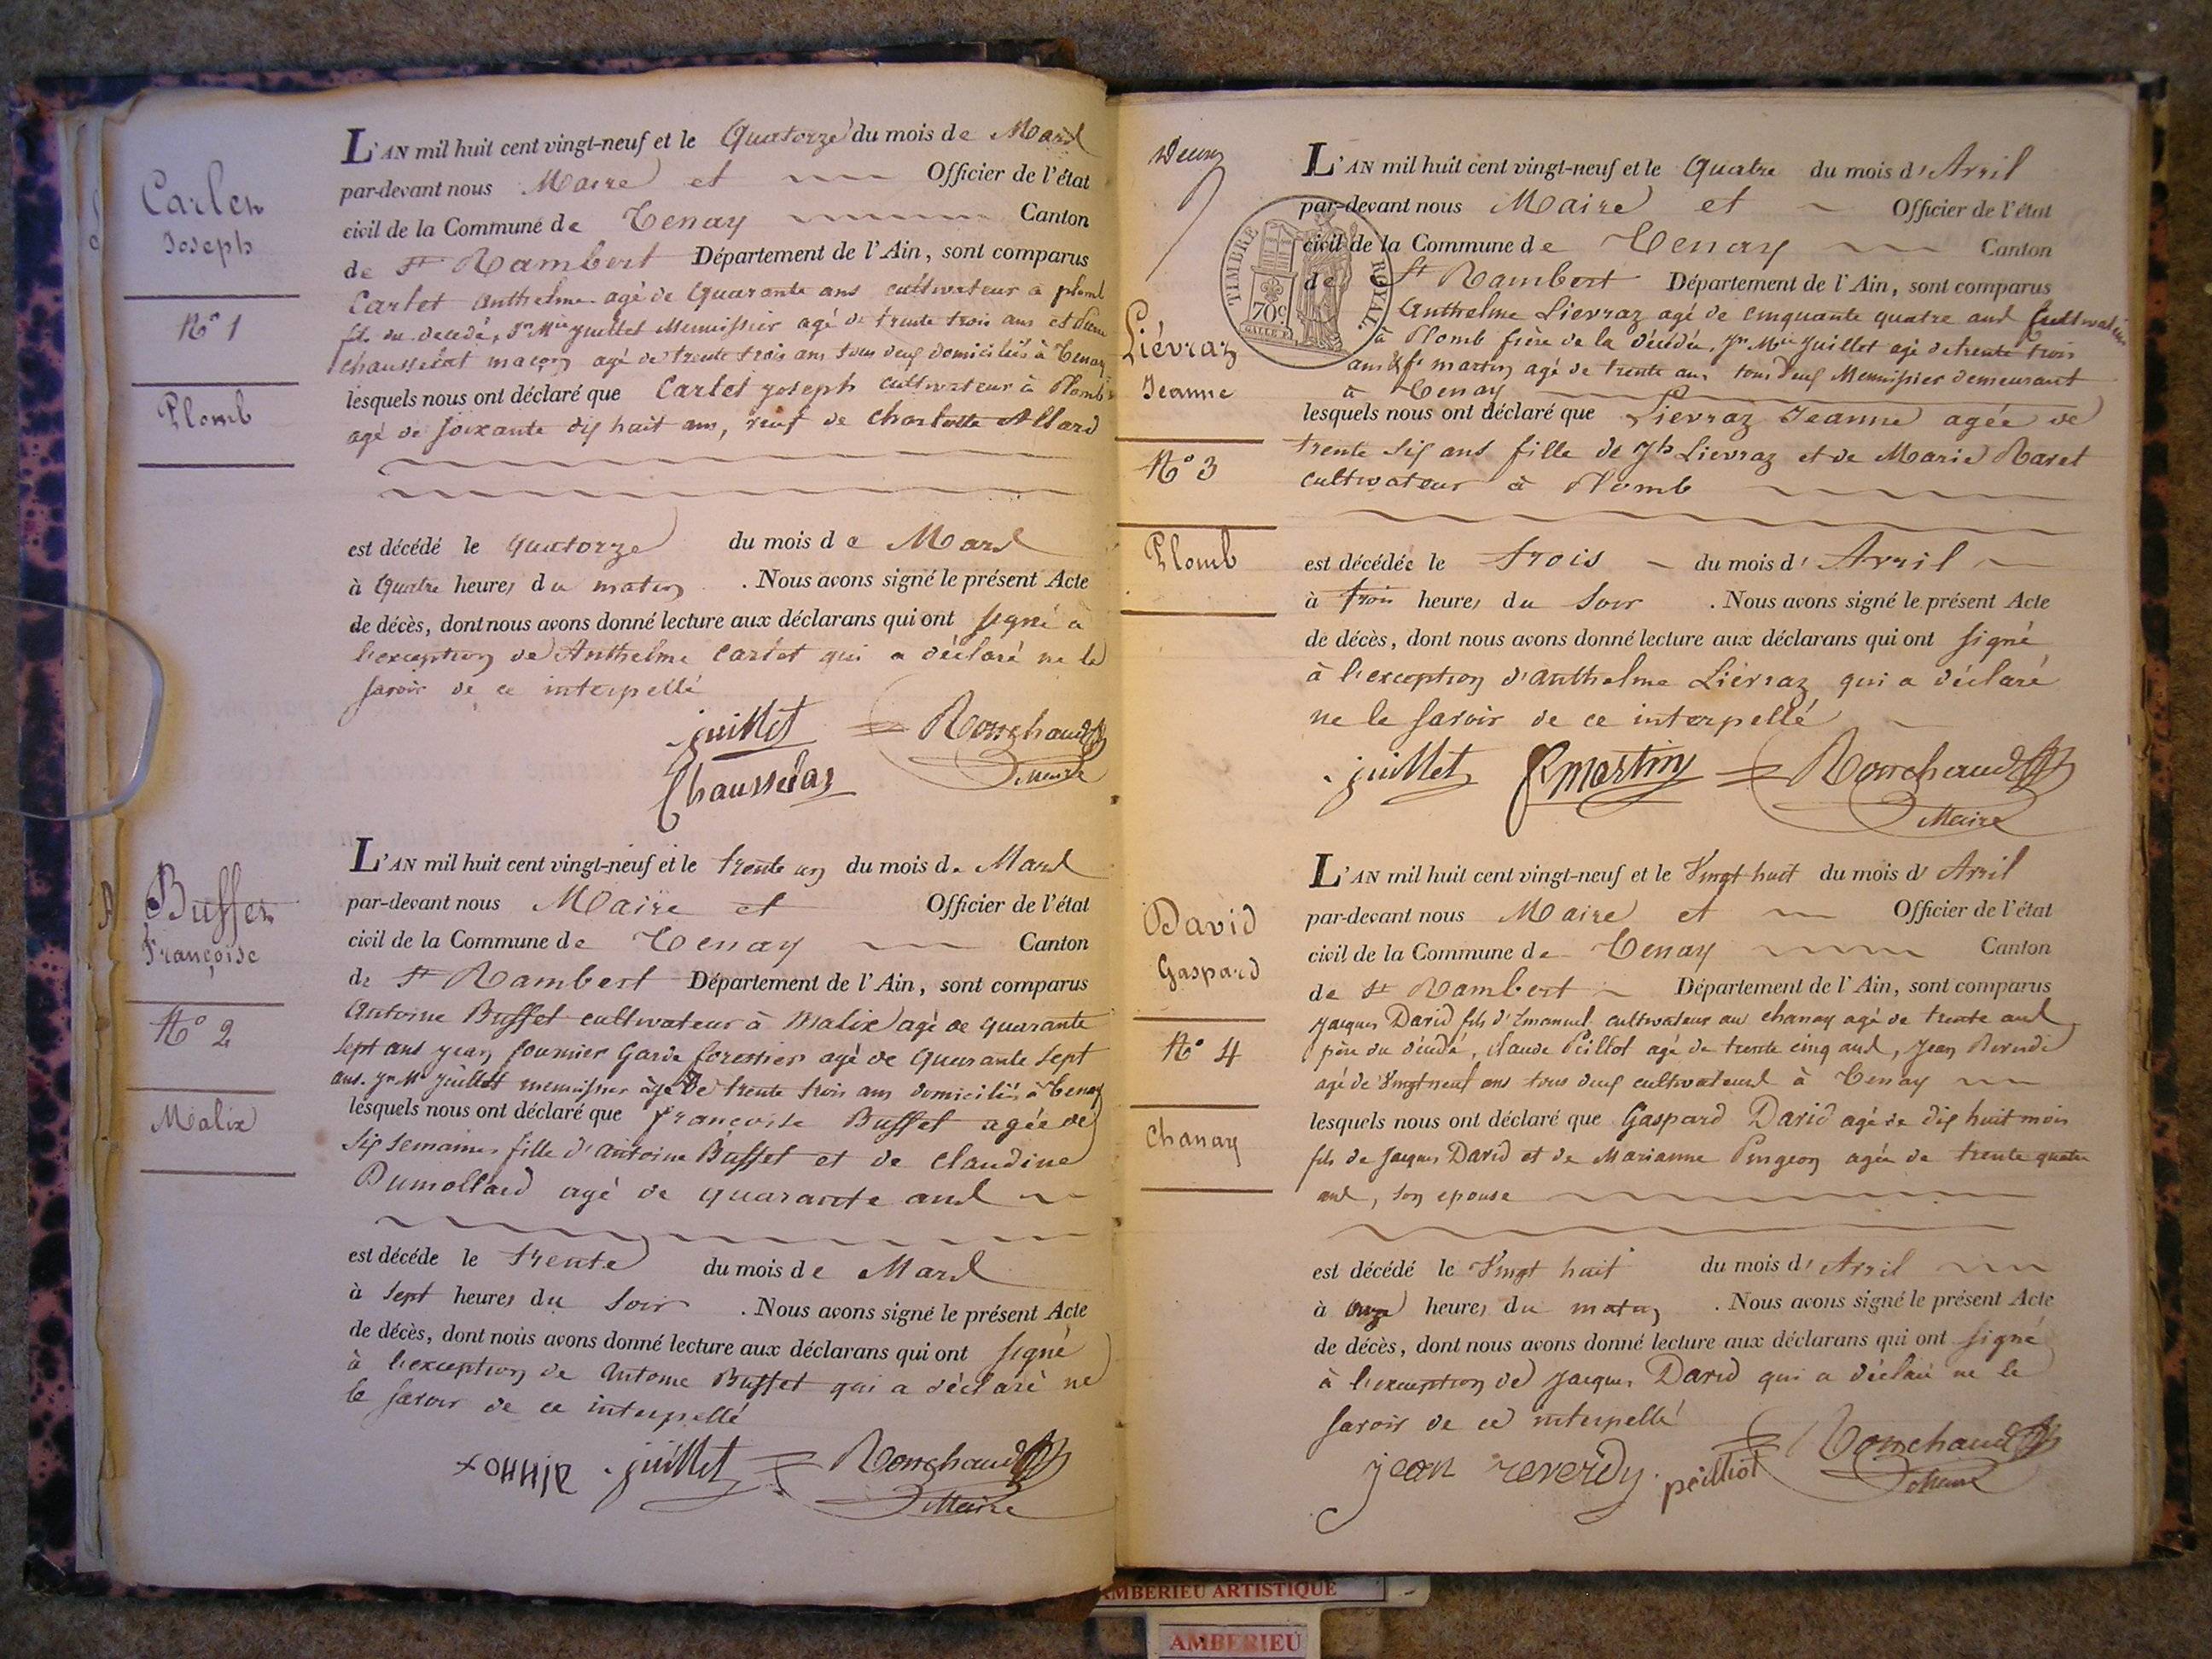 Carlet
Joseph
N° 1
Plomb
L'AN mil huit cent vingt-neuf et le Quatorze du mois de Mars
par-devant nous Maire et Officier de l'état
civil de la Commune de Tenay Canton
de St Rambert Département de l'Ain, sont comparus
Carlet Anthelme agé de Quarante ans cultivateur a plomb
fils du decedé, Jn Mie Juillet Menuisier agé de trente trois ans et
Chausselat maçon agé de trente trois ans tous deux domiciliés à Tenay
lesquels nous ont déclaré que Carlet joseph cultivateur à Plomb
agé de soixante dix huit ans, veuf de Charlotte Allard
est décédé le quatorze du mois de Mars
à Quatre heures du matin . Nous avons signé le présent Acte
de décès, dont nous avons donné lecture aux déclarans qui ont signé à
l'exception de Anthelme Carlet qui a déclaré ne le
savoir de ce interpellé
juillet Ronchaud
Chausselas Maire
Buffet
Françoise
N° 2
Malix
L'AN mil huit cent vingt-neuf et le trente un du mois de Mars
par-devant nous Maire et Officier de l'état
civil de la Commune de Tenay Canton
de St Rambert Département de l'Ain, sont comparus
Antoine Buffet cultivateur à Malix agé de quarante
sept ans jean fournier Garde forestier agé de Quarante sept
ans. Jn Mie Juillet menuisier âgé de trente trois ans domiciliés à Tenay
lesquels nous ont déclaré que françoise Buffet agée de
six semaines fille d'antoine Buffet et de Claudine
Dumollard agé de quarante ans
est décéde le trente du mois de Mars
à sept heures du soir . Nous avons signé le présent Acte
de décès, dont nous avons donné lecture aux déclarans qui ont signé
à l'exception de Antoine Buffet qui a déclaré ne
le savoir de ce interpellé
juillet Ronchaud
Maire
TIMBRE ROYAL
70c
Liévraz
Jeanne
N° 3
Plomb
L'AN mil huit cent vingt-neuf et le Quatre du mois d'Avril
par-devant nous Maire et Officier de l'état
civil de la Commune de Tenay Canton
de St Rambert Département de l'Ain, sont comparus
Anthelme Lievraz agé de cinquante quatre ans Cultivateur
à Plomb frère de la décédée, Jn Mie Juillet agé de trente trois
ans & fs martin agé de trente ans tous deux Menuisier demeurant
à Tenay
lesquels nous ont déclaré que Lievraz Jeanne agée de
trente six ans fille de Jh Lievraz et de Marie Ravet
cultivateur à Plomb
est décédée le trois du mois d'Avril
à trois heures du soir . Nous avons signé le présent Acte
de décès, dont nous avons donné lecture aux déclarans qui ont signé
à l'exception d'anthelme Liévraz qui a déclaré
ne le savoir de ce interpellé
juillet fs martin Ronchaud
Maire
David
Gaspard
N° 4
Chanay
L'AN mil huit cent vingt-neuf et le Vingt huit du mois d'Avril
par-devant nous Maire et Officier de l'état
civil de la Commune de Tenay Canton
de St Rambert Département de l'Ain, sont comparus
Jacques David fils d'Emanuel cultivateur au chanay agé de trente ans
père du décédé, Claude Peillot agé de trente cinq ans, Jean Reverdi
agé de Vingt neuf ans tous deux cultivateurs à Tenay
lesquels nous ont déclaré que Gaspard David agé de dix huit mois
fils de Jacques David et de Marianne Pingeon agée de trente quatre
ans, son epouse
est décédé le Vingt huit du mois d'Avril
à onze heures du matin . Nous avons signé le présent Acte
de décès, dont nous avons donné lecture aux déclarans qui ont signé
à l'exception de Jacques David qui a déclaré ne le
savoir de ce interpellé
jean reverdy peilliot Ronchaud
Maire
AMBERIEU ARTISTIQUE
AMBERIEU